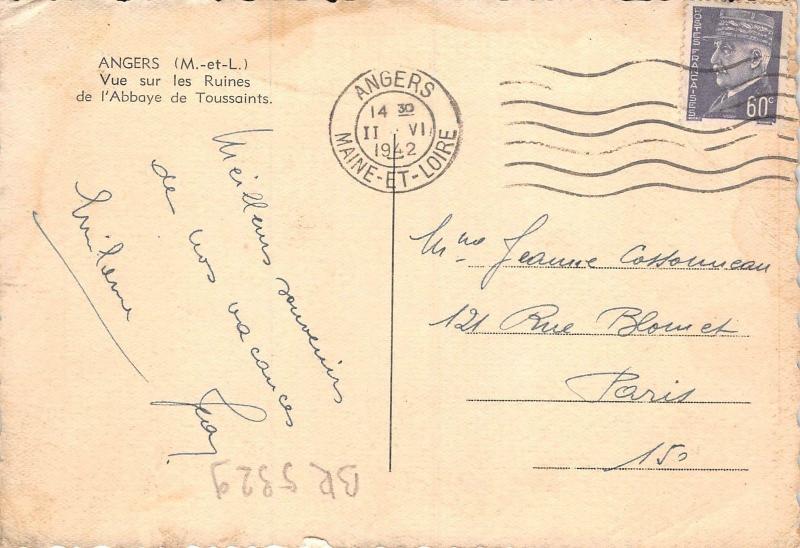 ANGERS (M.-et-L.)
Vue sur les Ruines
de l'Abbaye de Toussaints.
ANGERS
14 30
II . VI
1942
MAINE-ET-LOIRE
POSTES FRANÇAISES
60c
Meilleurs souvenirs
de nos vacances
Mme Jeanne Cossonneau
121 Rue Blomet
Paris
15e
BR 5329